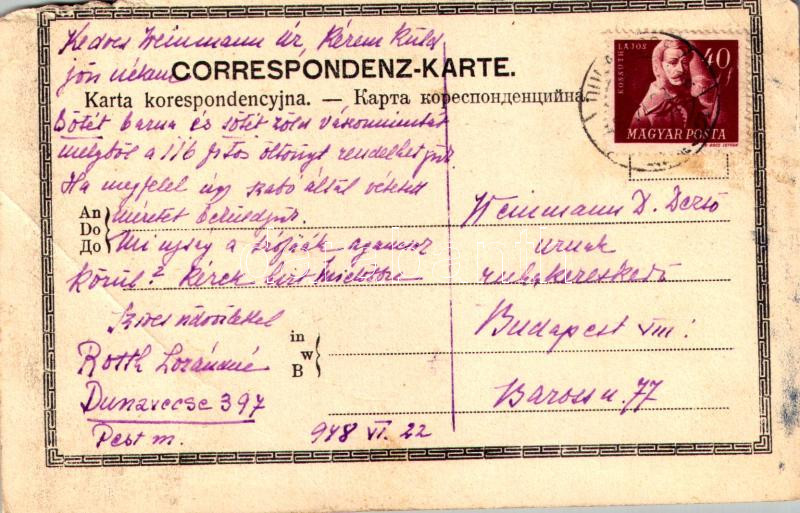 Kedves Weinmann úr, Kérem Küld
jön nékem
CORRESPONDENZ-KARTE.
Karta korespondencyjna. — Карта кореспонденцийна
Sötét barna és sötét zöld
melyből a 116 öltönyt rendelhetjük.
Ha megfelel úgy szabó által
An
Do
До
méretet beküldjük.
Mi ujság a
körül? Kérek
Szives üdvözlettel
Roth Lorándné
Dunavecse 397
Pest m. 948 VI. 22
in
w
B
KOSSUTH LAJOS
40 f
MAGYAR POSTA
Weinmann D. Dezső
urnak
ruhakereskedő
Budapest VIII.
Baross u. 77